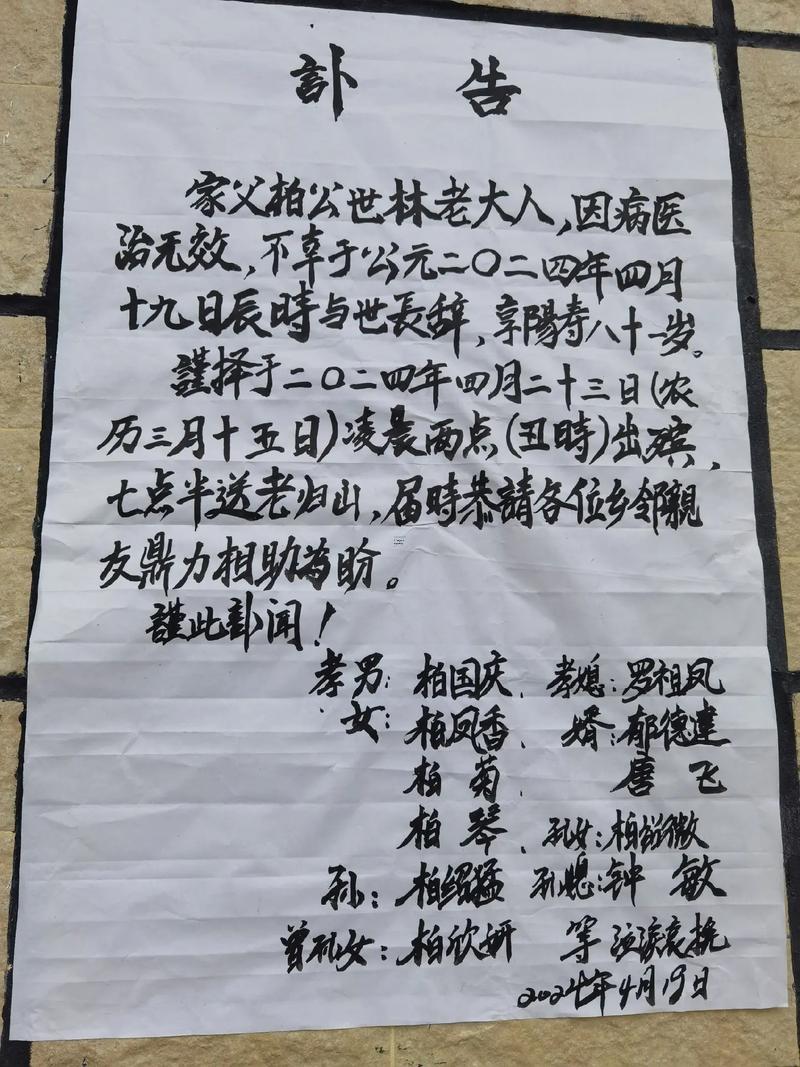 訃 告
家父柏公世林老大人,因病医
治无效,不幸于公元二〇二四年四月
十九日辰時与世長辞,享陽寿八十一岁。
謹择于二〇二四年四月二十三日(农
历三月十五日)凌晨两点(丑時)出殡,
七点半送老归山,届時恭請各位乡邻親
友鼎力相助为盼。
謹此訃闻!
孝男:柏国庆、孝媳:罗祖凤
女:柏凤香、婿:郁德建
柏菊、唐飞
柏琴、孙女:柏微
孙:柏绍猛 孙媳:钟敏
曾孙女:柏欣妍 等泣淚哀挽
2024年4月19日